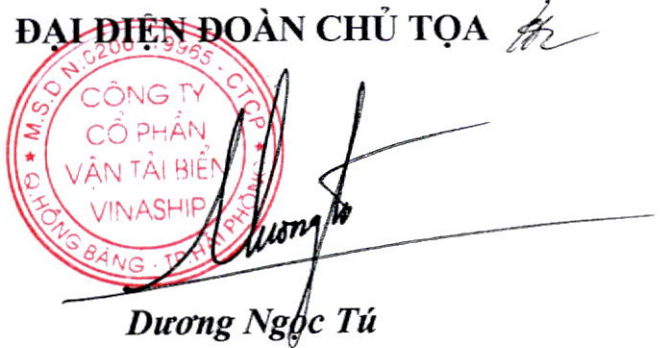 ĐẠI DIỆN ĐOÀN CHỦ TỌA
CÔNG TY
CỔ PHẦN
VẬN TẢI BIỂN
VINASHIP
Q.HỒNG BÀNG - TP.HẢI PHÒNG
Dương Ngọc Tú